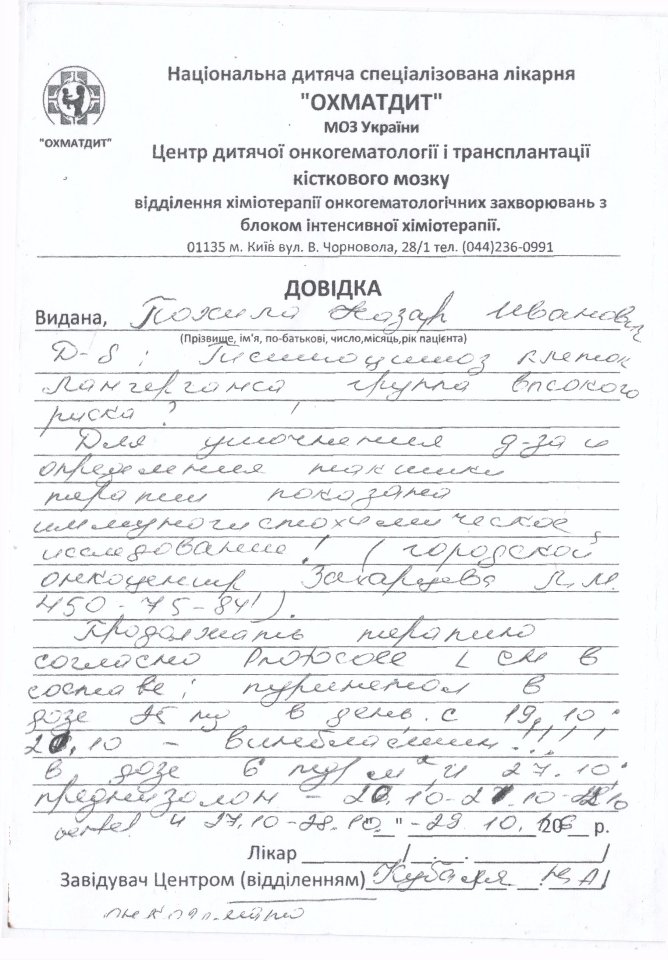 "ОХМАТДИТ"
Національна дитяча спеціалізована лікарня
"ОХМАТДИТ"
МОЗ України
Центр дитячої онкогематології і трансплантації
кісткового мозку
відділення хіміотерапії онкогематологічних захворювань з
блоком інтенсивної хіміотерапії.
01135 м. Київ вул. В. Чорновола, 28/1 тел. (044)236-0991
ДОВІДКА
Видана, Похила Назар Иванович
(Прізвище, ім'я, по-батькові, число,місяць,рік пацієнта)
Д-s: Гистиоцитоз клеток
Лангерганса, группа высокого
риска?
Для уточнения д-за и
определения тактики
терапии показано
иммуногистохимическое
исследование! (городской
онкоцентр Захарцева Л.М.
450-75-84!).
Продолжать терапию
согласно Protocole LCH в
составе: пуринетол в
дозе 25 мг в день с 19.10.
.10 - винбластин!!!!
в дозе 6 мг/м² и 27.10,
преднизолон -
и 27.10-28.10. "__" -29.10. 20 р.
Лікар
Завідувач Центром (відділенням)